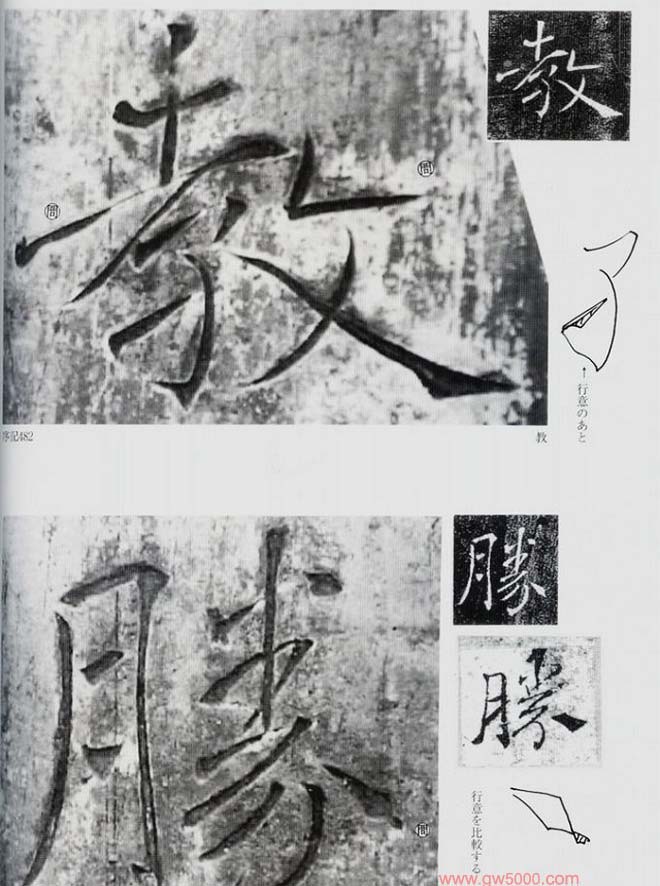 教
教
行意のあと
序記482
教
勝
勝
勝
行意を比較する
www.qw5000.com